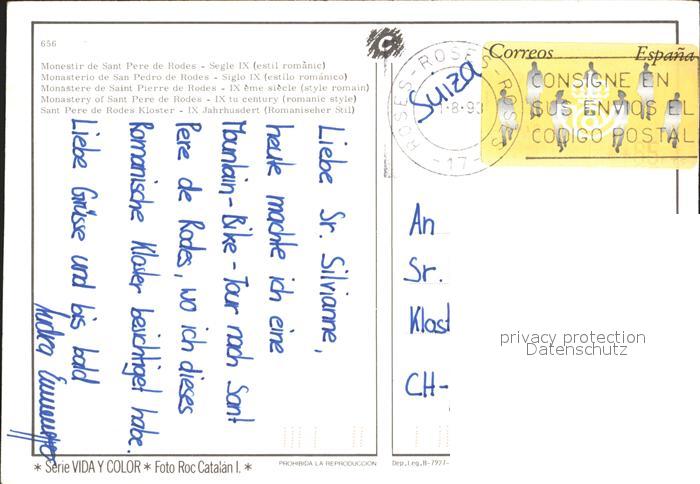 656
Monestir de Sant Pere de Rodes - Segle IX (estil romànic)
Monasterio de San Pedro de Rodes - Siglo IX (estilo románico)
Monastere de Saint Pierre de Rodes - IX ême siècle (style romain)
Monastery of Sant Pere de Rodes - IX tu century (romanic style)
Sant Pere de Rodes Kloster - IX Jahrhusdert (Romaniseher Stil)
Liebe Sr. Silvianne,
heute machte ich eine
Mountain-Bike-Tour nach Sant
Pere de Rodes, wo ich dieses
Romanische Kloster besichtiget habe.
Liebe Grüsse und bis bald
Andrea
* Serie VIDA Y COLOR * Foto Roc Catalán I. *
PROHIBIDA LA REPRODUCCIÓN
C
ROSES-ROSES-ROSES
1-8-93
-17-
Suiza
Correos España
CONSIGNE EN
SUS ENVIOS EL
CODIGO POSTAL
An
Sr.
Klost
CH-
privacy protection
Datenschutz
Dep.Leg.B-7977-